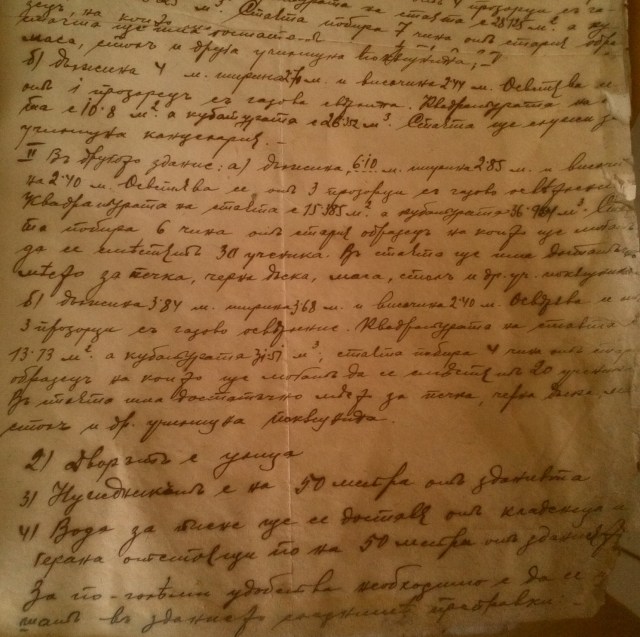 м³. Стаята побира 7 чина отъ стария обра-
маса, столъ и други училищни покѫщнина.
б) дължина 4 м. ширина 2·70 м. и височина 2·44 м. Освѣтява се
отъ 1 прозорецъ съ газова свѣтлина. Квадратурата на
та е 10·8 м² а кубатурата е 26·352 м³. Стаята ще служи за
училищна канцелария. –
II Въ другото здание: а) дължина 6·10 м. ширина 2·85 м. и височи
на 2·40 м. Освѣтлява се отъ 3 прозорци съ газово освѣтление
Квадратурата на стаята е 15·385 м² а кубатурата 36·924 м³. Ста
та побира 6 чина отъ стария образецъ на които ще мога
да се смѣстятъ 30 ученика. Въ стаята ще има достатъч
мѣсто за печка, черна дъска, маса, столъ и др. уч. покѫщнина
б) дължина 3·84 м. ширина 3·68 м. и височина 2·40 м. Освѣтява
3 прозорци съ газово освѣтление. Квадратурата на стаята
13·73 м² а кубатурата 31·57 м³; стаята побира 4 чина отъ стария
образецъ на които ще могатъ да се смѣстятъ 20 ученика
Въ стаята има достатъчно мѣсто за печка, черна дъска, ма
столъ и др. училищна покѫщнина.
2) Дворътъ е улица
3) Нуждникътъ е на 50 метра отъ зданията
4) Вода за пиене ще се доставя отъ кладенци и
герана отстоящи по на 50 метра отъ зданията
За по-голѣми удобства необходимо е да се
въ зданието следнитѣ преправки –